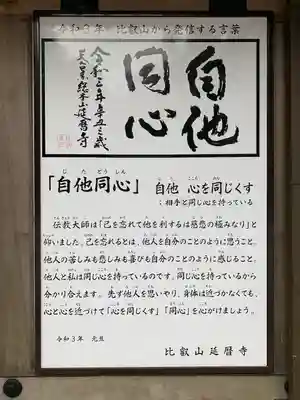 令和3年 比叡山から発信する言葉
自他
同心
令和三年辛丑歳
天台宗総本山延暦寺
「自他同心」 自他 心を同じくす
；相手と同じ心を持っている
伝教大師は「己を忘れて他を利するは慈悲の極みなり」と
仰いました。己を忘れるとは、他人を自分のことのように思うこと。
他人の苦しみも悲しみも喜びも自分のことのように感じること。
他人と私は同じ心を持っているのです。同じ心を持っているから
分かり合えます。先ず他人を思いやり、身体は近づかなくても、
心と心を近づけて「心を同じくす」「同心」を心がけましょう。
令和3年 元旦
比叡山延暦寺